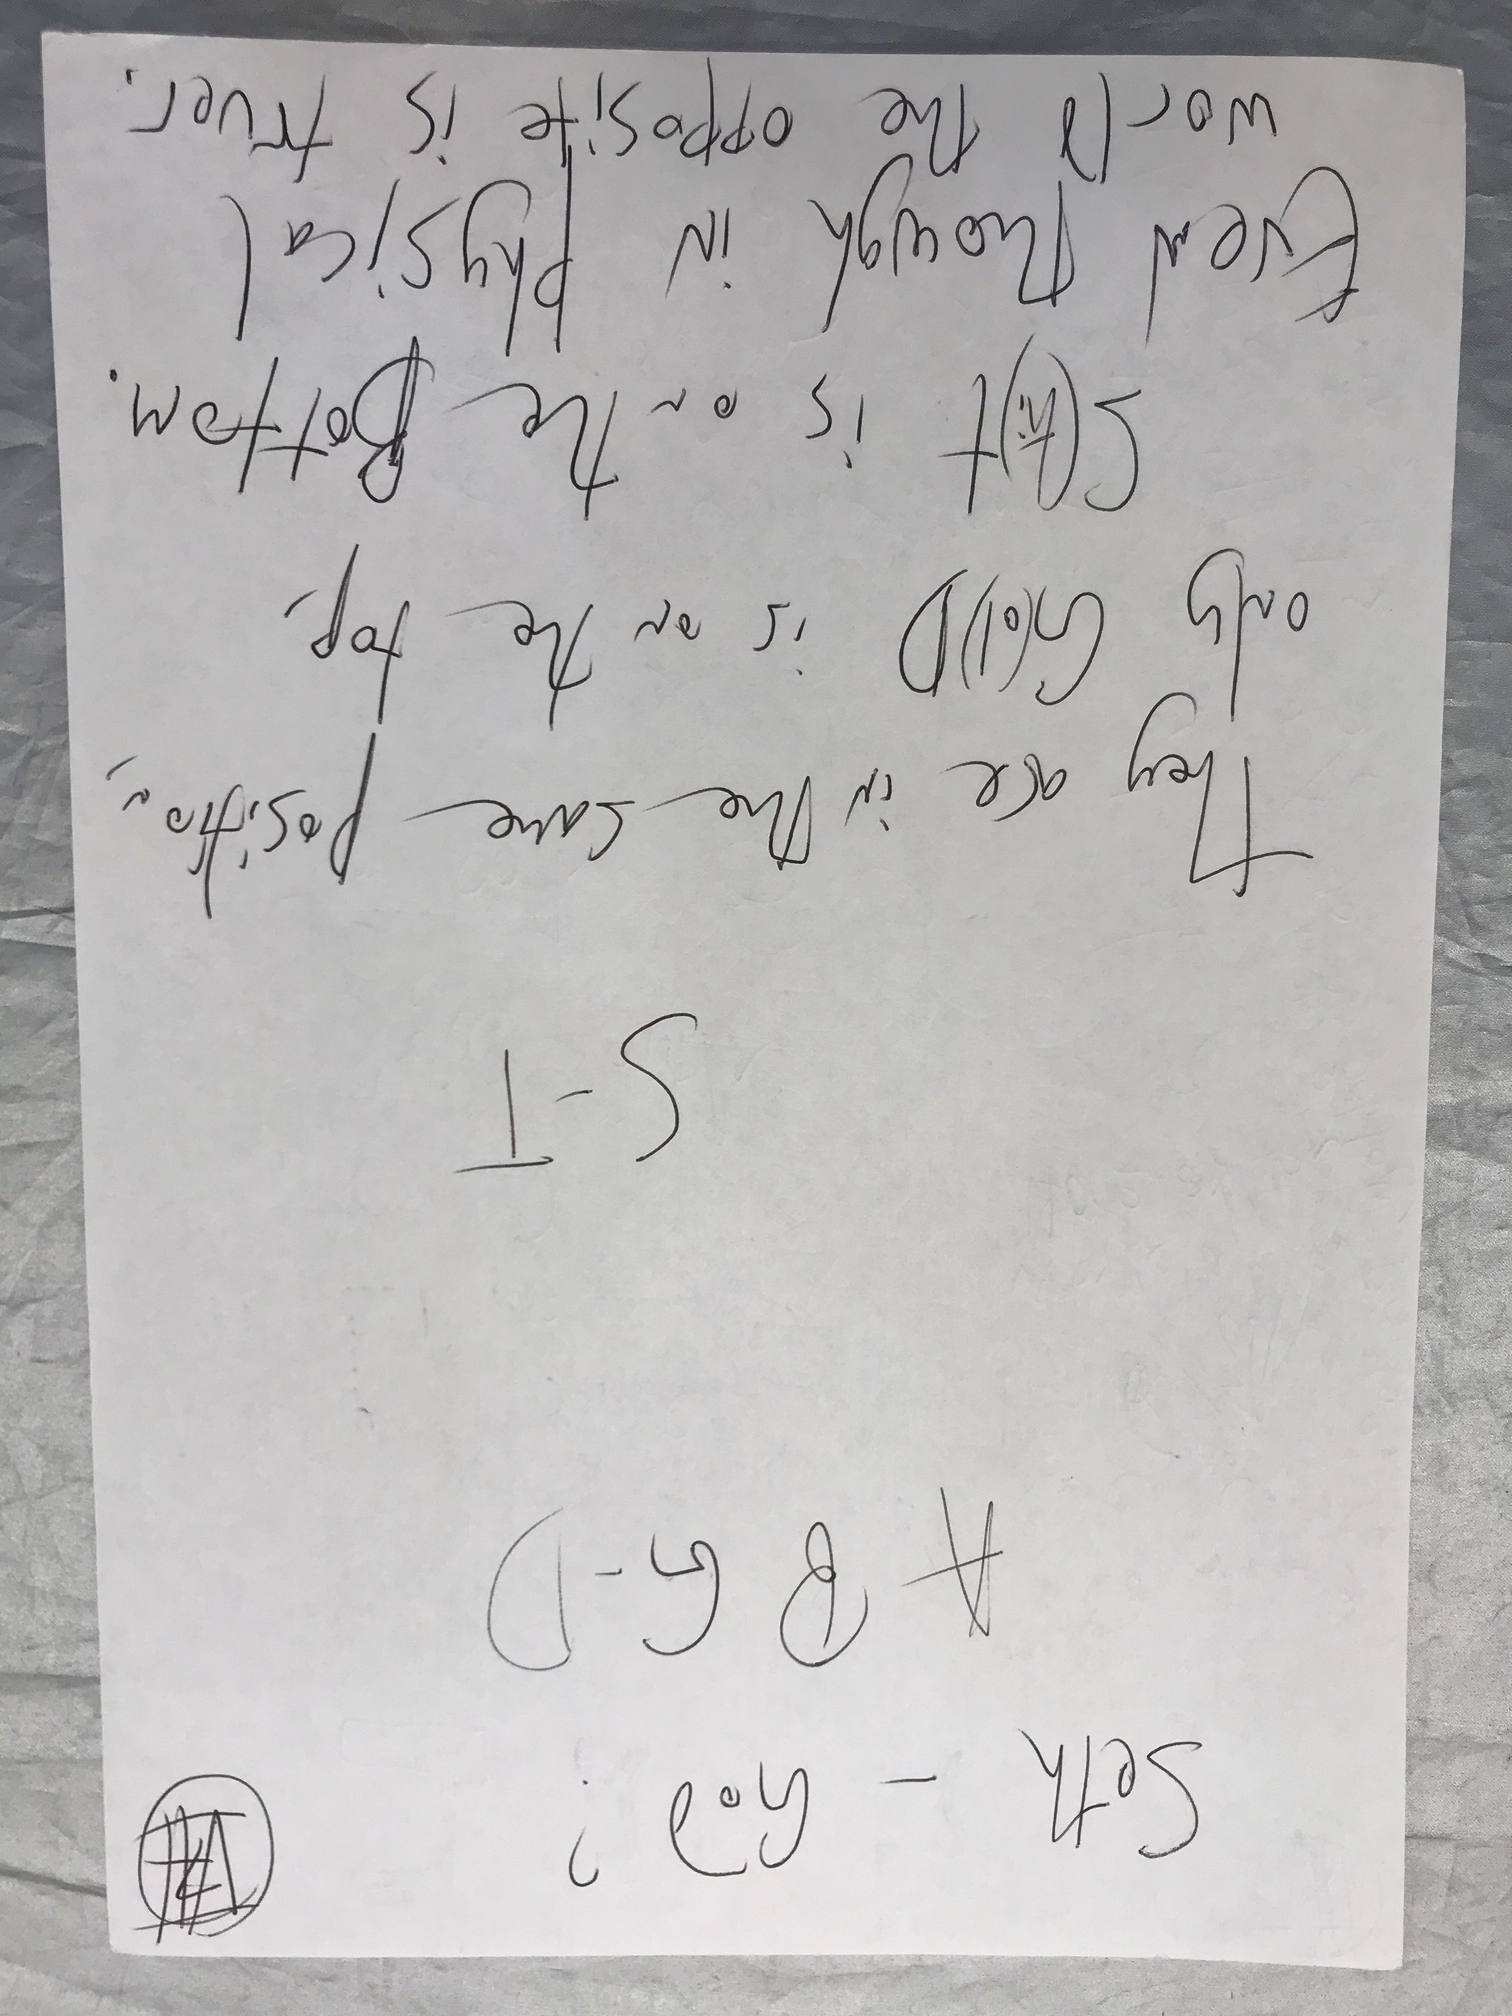 Seth - God ?
A B G-D
S-T
They are in the same position,
only G(ol)D is on the top.
S(hi)t is on the Bottom.
Even though in physical
world the opposite is truer.